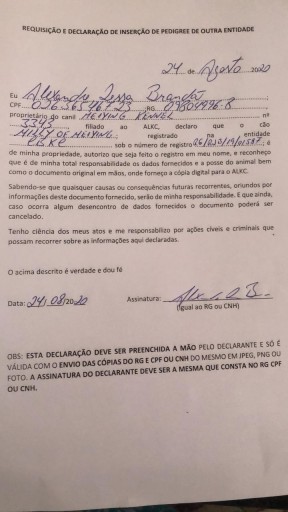 REQUISIÇÃO E DECLARAÇÃO DE INSERÇÃO DE PEDIGREE DE OUTRA ENTIDADE
24 de Agosto 2020
Eu Alexandre Lessa Brandão
CPF RG
proprietário do canil MEIYING KENNEL nº
3343 filiado ao ALKC, declaro que o cão
MILLY OF MEIYING registrado na entidade
sob o número de registro é
de minha propriedade, autorizo que seja feito o registro em meu nome, e reconheço
que é de minha total responsabilidade os dados fornecidos e a posse do animal bem
como o documento original em mãos, onde forneço a cópia digital para o ALKC.
Sabendo-se que quaisquer causas ou consequências futuras recorrentes, oriundos por
informações deste documento fornecido, serão de minha responsabilidade. E que ainda,
caso ocorra algum desencontro de dados fornecidos o documento poderá ser
cancelado.
Tenho ciência dos meus atos e me responsabilizo por ações cíveis e criminais que
possam recorrer sobre as informações aqui declaradas.
O acima descrito é verdade e dou fé
Data: 24/08/2020 Assinatura:
(Igual ao RG ou CNH)
OBS: ESTA DECLARAÇÃO DEVE SER PREENCHIDA A MÃO PELO DECLARANTE E SÓ É
VÁLIDA COM O ENVIO DAS CÓPIAS DO RG E CPF OU CNH DO MESMO EM JPEG, PNG OU
FOTO. A ASSINATURA DO DECLARANTE DEVE SER A MESMA QUE CONSTA NO RG CPF
OU CNH.